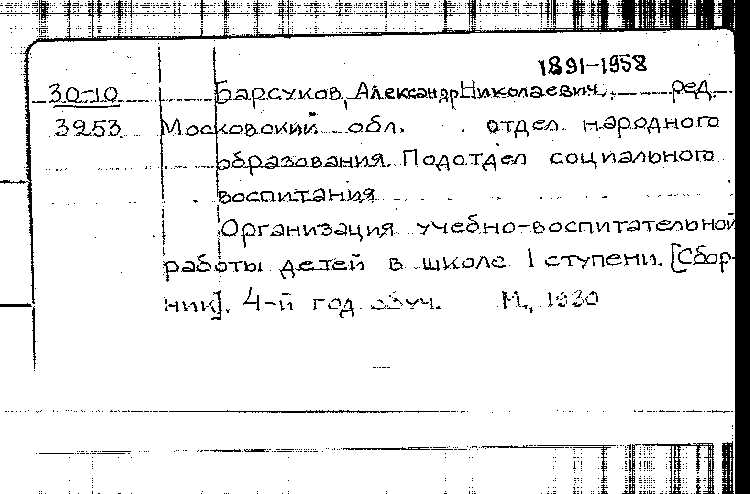 1891-1958
30-10 Барсуков, Александр Николаевич, ред.
3253 Московский обл. отдел народного
образования. Подотдел социального
воспитания
Организация учебно-воспитательной
работы детей в школе I ступени. [Сбор-
ник]. 4-й год обуч. М., 1930